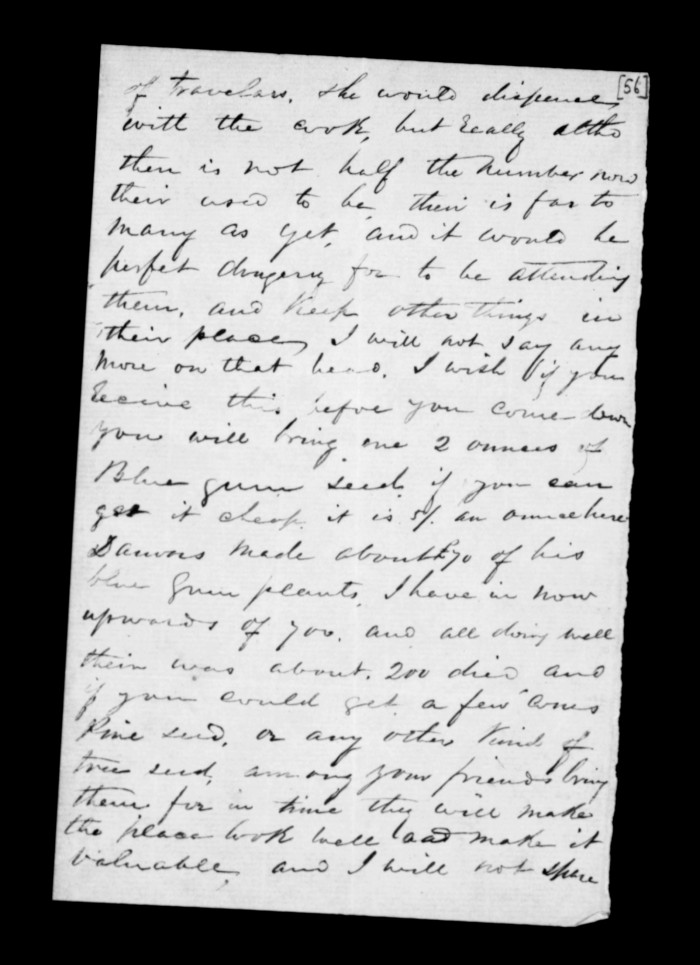 [56]
of travelars. she would dispence
with the cook, but really altho
then is not half the number now
their used to be, their is far to
many as yet, and it would be
perfet drugery for to be attending
them, and keep other things in
their place, I will not say any
more on that head. I wish if you
receive this before you come down
you will bring me 2 ounces of
Blue gum seed, if you can
get it cheap. it is 5/. an ounce here
made about £70 of his
blue gum plants. I have in now
upwards of 700. and all doing well
their was about. 200 died and
if you could get a few cones
Pine seed, or any other kind of
tree seed, among your friends bring
them for in time they will make
the place look well and make it
valuable, and I will not spare